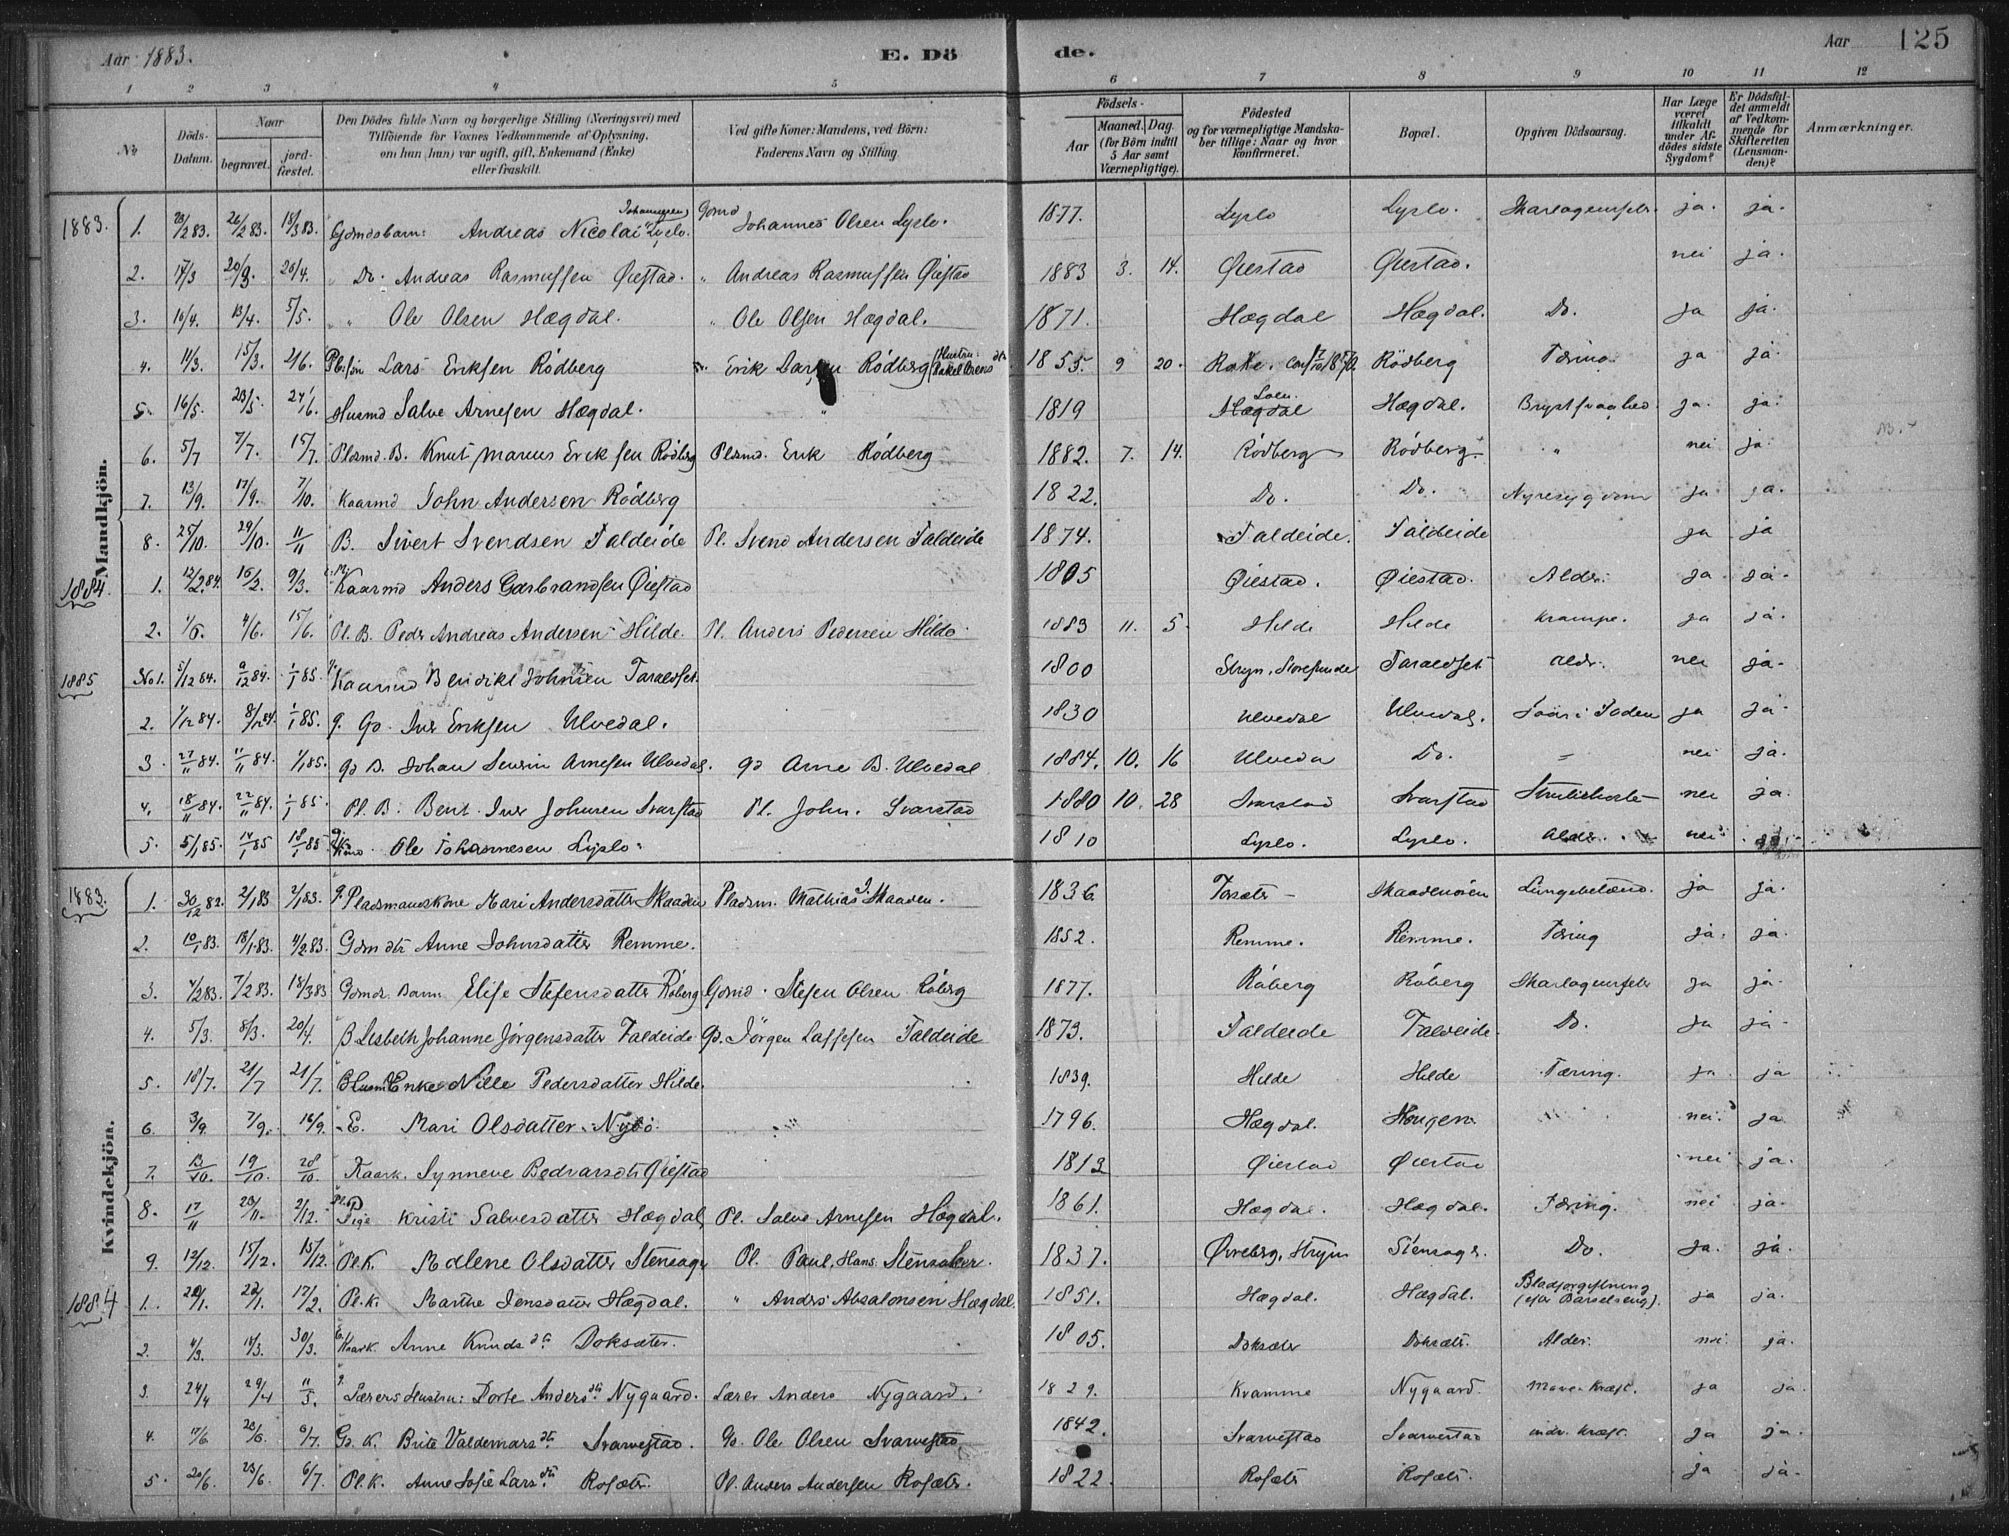 Aar 1883.
E. Döde.
Aar 125
1 2 3 4 5 6 7 8 9 10 11 12
No
Döds-Datum.
Naar
begravet.
jord-fæstet.
Den Dödes fulde Navn og borgerlige Stilling (Næringsvei) med
Tilföiende for Voxnes Vedkommende af Oplysning,
om han (hun) var ugift, gift, Enkemand (Enke)
eller fraskilt.
Ved gifte Koner: Mandens, ved Börn:
Faderens Navn og Stilling.
Födsels-
Aar
Maaned. Dag.
(for Börn indtil
5 Aar samt
Værnepligtige).
Födested
og for værnepligtige Mandska-
ber tillige: Naar og hvor
konfirmeret.
Bopæl.
Opgiven Dödsaarsag.
Har Læge
været
tilkaldt
under Af-
dödes sidste
Sygdom?
Er Dödsfal-
det anmeldt
af Vedkom-
mende for
Skifteretten
(Lensman-
den)?
Anmærkninger.
Mandkjön.
1883. 1. 23/2 83. 26/2 83. 18/3 83. Gdmdsbarn: Andreas Nicolai Johannesen Lyslo. Gdmd Johannes Olsen Lyslo. 1877. Lyslo Lyslo. Skarlagensfeber ja. ja.
2. 17/3 20/3. 20/4. " Do. Andreas Rasmussen Øiestad. " Andreas Rasmussen Øiestad 1883 3. 14. Øiestad Øiestad. nei ja.
3. 10/4. 13/4. 5/5. " " Ole Olsen Hægdal. " Ole Olsen Hægdal. 1871. Hægdal Hægdal. Do. ja ja.
4. 11/3. 15/3. 2/6. Pl. søn Lars Eriksen Rödberg Erik Larsen Rödberg 1855. 9 20. Rake. Rödberg Tæring ja ja.
5. 16/5. 23/5. 24/6. Husmd Salve Arnesen Hægdal. " 1819 Hægdal Loen. Hægdal. Brystsvaghed ja. ja.
6. 5/7 7/7. 15/7. Pladsmd. B. Knut Marius Eriksen Rödberg Pladsmd. Erik Rödberg 1882. 7. 14. Rödberg Rödberg. " nei ja.
7. 13/9. 17/9. 7/10. Kaarmd John Andersen Rödberg 1822. Do. Do. Nyresygdom ja ja.
8. 25/10. 29/10. 11/11 B. Sivert Svendsen Faldeide Pl. Svend Andersen Faldeide 1874. Faldeide. Faldeide ja ja
1884. 1. 12/2 84. 16/2. 9/3. Kaarmd Anders Garbrandsen Øiestad 1805 Øiestad. Øiestad. Alder. ja. ja.
2. 1/6. 4/6. 15/6. Pl. B. Peder Andreas Andersen Hilde. Pl. Anders Pedersen Hilde. 1883 11. 5. Hilde Hilde Krampe. ja ja.
1885 No 1. 5/12 84. 9/12 84. 1/1 85. Kaarmd Bendikt Johnsen Taraldset. 1800 Stryn, Storesunde Taraldset aldr. nei ja.
2. 1/12 84. 8/12 84. 1/1 85. g. Gd. Iver Eriksen Ulvedal. 1830 Ulvedal Ulvedal. Saar i Foden ja ja.
3. 27/11 84. 11/11 84. 1/1 85. Gd B. Johan Severin Arnesen Ulvedal. Gd Arne B. Ulvedal 1884. 10. 16 Ulvedal Do. " nei ja.
4. 18/11 84. 22/11 84. 1/1 85. Pl. B. Bent Iver Johnsen Svarstad Pl. John. Svarstad 1880 10. 28 Svarstad Svarstad Strubehoste nei ja.
5. 5/1 85. 14/1 85 18/1 85. Ole Johannesen Lyslo. 1810 Lyslo. Lyslo. Alder. nei
Kvindekjön.
1883. 1. 30/12 82. 2/1 83 2/1 83. g. Pladsmandskone Mari Andersdatter Skaaden Pladsm. Mathias J. Skaaden. 1836. Tosæter Skaadenöien Lungebetænd. ja ja.
2. 10/1 83. 18/1 83. 4/2 83. Gdm dtr Anne Johnsdatter Remme. 1852. Remme. Remme. Tæring ja. ja.
3. 4/2 83. 7/2 83. 18/3 83 Gdmds Barn Elise Stefensdatter Röberg Gdmd. Stefen Olsen Röberg 1877. Röberg Röberg Skarlagensfeber ja ja.
4. 5/3. 8/3. 20/4. B Lisbeth Johanne Jörgensdatter Faldeide Gd. Jörgen Lassesen Faldeide 1873. Faldeide Faldeide. Do. ja ja.
5. 18/7. 21/7 21/7. Husm Enke Nille Pedersdatter Hilde. 1839. Hilde Hilde Tæring. ja ja
6. 3/9. 7/9. 16/9. E. Mari Olsdatter Nybö. 1796. Hægdal. Haugen nei. ja
7. 13/10. 19/10. 28/10. Kaark. Synneve Bodvarsdtr Øiestad 1813 Øiestad Øiestad nei ja.
8. 17/11 23/11. 2/12. Pl. Pige Kristi Salvesdatter Hægdal Pl. Salve Arnesen Hægdal. 1861. Hægdal. Hægdal. Tæring. nei ja.
9. 12/12. 15/12. 15/12. Pl. K. Madlene Olsdatter Stensager Pl. Paul Hans. Stensaker. 1837. Øvreberg, Stryn Stensagr. Do. ja. ja.
1884 1. 20/1. 22/1. 17/2. Pl. K. Marthe Jensdatter Hægdal. " Anders Absalonsen Hægdal. 1851. Hægdal. Hægdal. Blodforgiftning (efter Barselseng). ja ja.
2. 4/3. 14/3. 30/3. E. Kaark. Anne Knuds dtr Doksæter. 1805. Doksæter Doksætr. Alder. nei ja.
3. 24/4 29/4 11/5. g. Lærers Hustru: Dorte Anders dtr Nygaard. Lærer Anders Nygaard. 1829. Kvamme Nygaard. Mave Kræft. ja ja.
4. 17/6. 20/6. 6/7. Gd. K. Brite Valdemars dtr Svarvestad. Gd. Ole Olsen Svarvestad 1842. Svarvestad Svarvestad indv. Kræft. ja ja.
5. 20/6. 23/6. 6/7. Pl. K. Anne Sofie Lars dtr Rosætr. Pl. Anders Andersen Rosætr. 1822. Rosætr Rosætr. ja ja.